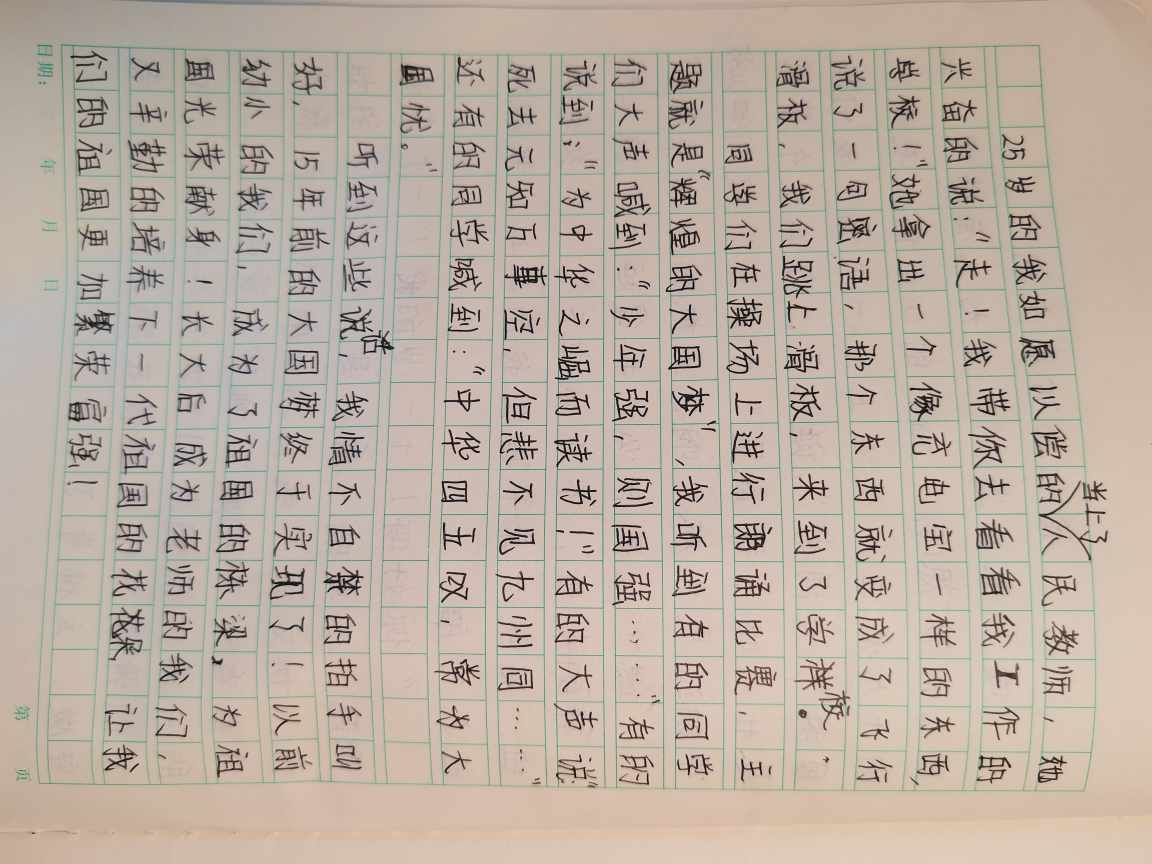 25岁的我如愿以偿的当上了人民教师，她
兴奋的说：“走！我带你去看看我工作的
学校！”她拿出一个像充电宝一样的东西，
说了一句密语，那个东西就变成了飞行
滑板，我们跳上滑板，来到了学校。
同学们在操场上进行朗诵比赛，主
题就是“辉煌的大国梦”，我听到有的同学
们大声喊到：“少年强，则国强……”有的
说到：“为中华之崛而读书！”有的大声说“
死去元知万事空，但悲不见九州同……”
还有的同学喊到：“中华四五囚，常为大
国忧。”
听到这些说话，我情不自禁的拍手叫
好，15年前的大国梦终于实现了！以前
幼小的我们，成为了祖国的栋梁，为祖
国光荣献身！长大后成为老师的我们，
又辛勤的培养下一代祖国的花朵 让我
们的祖国更加繁荣富强！
日期： 年 月 日 第 页